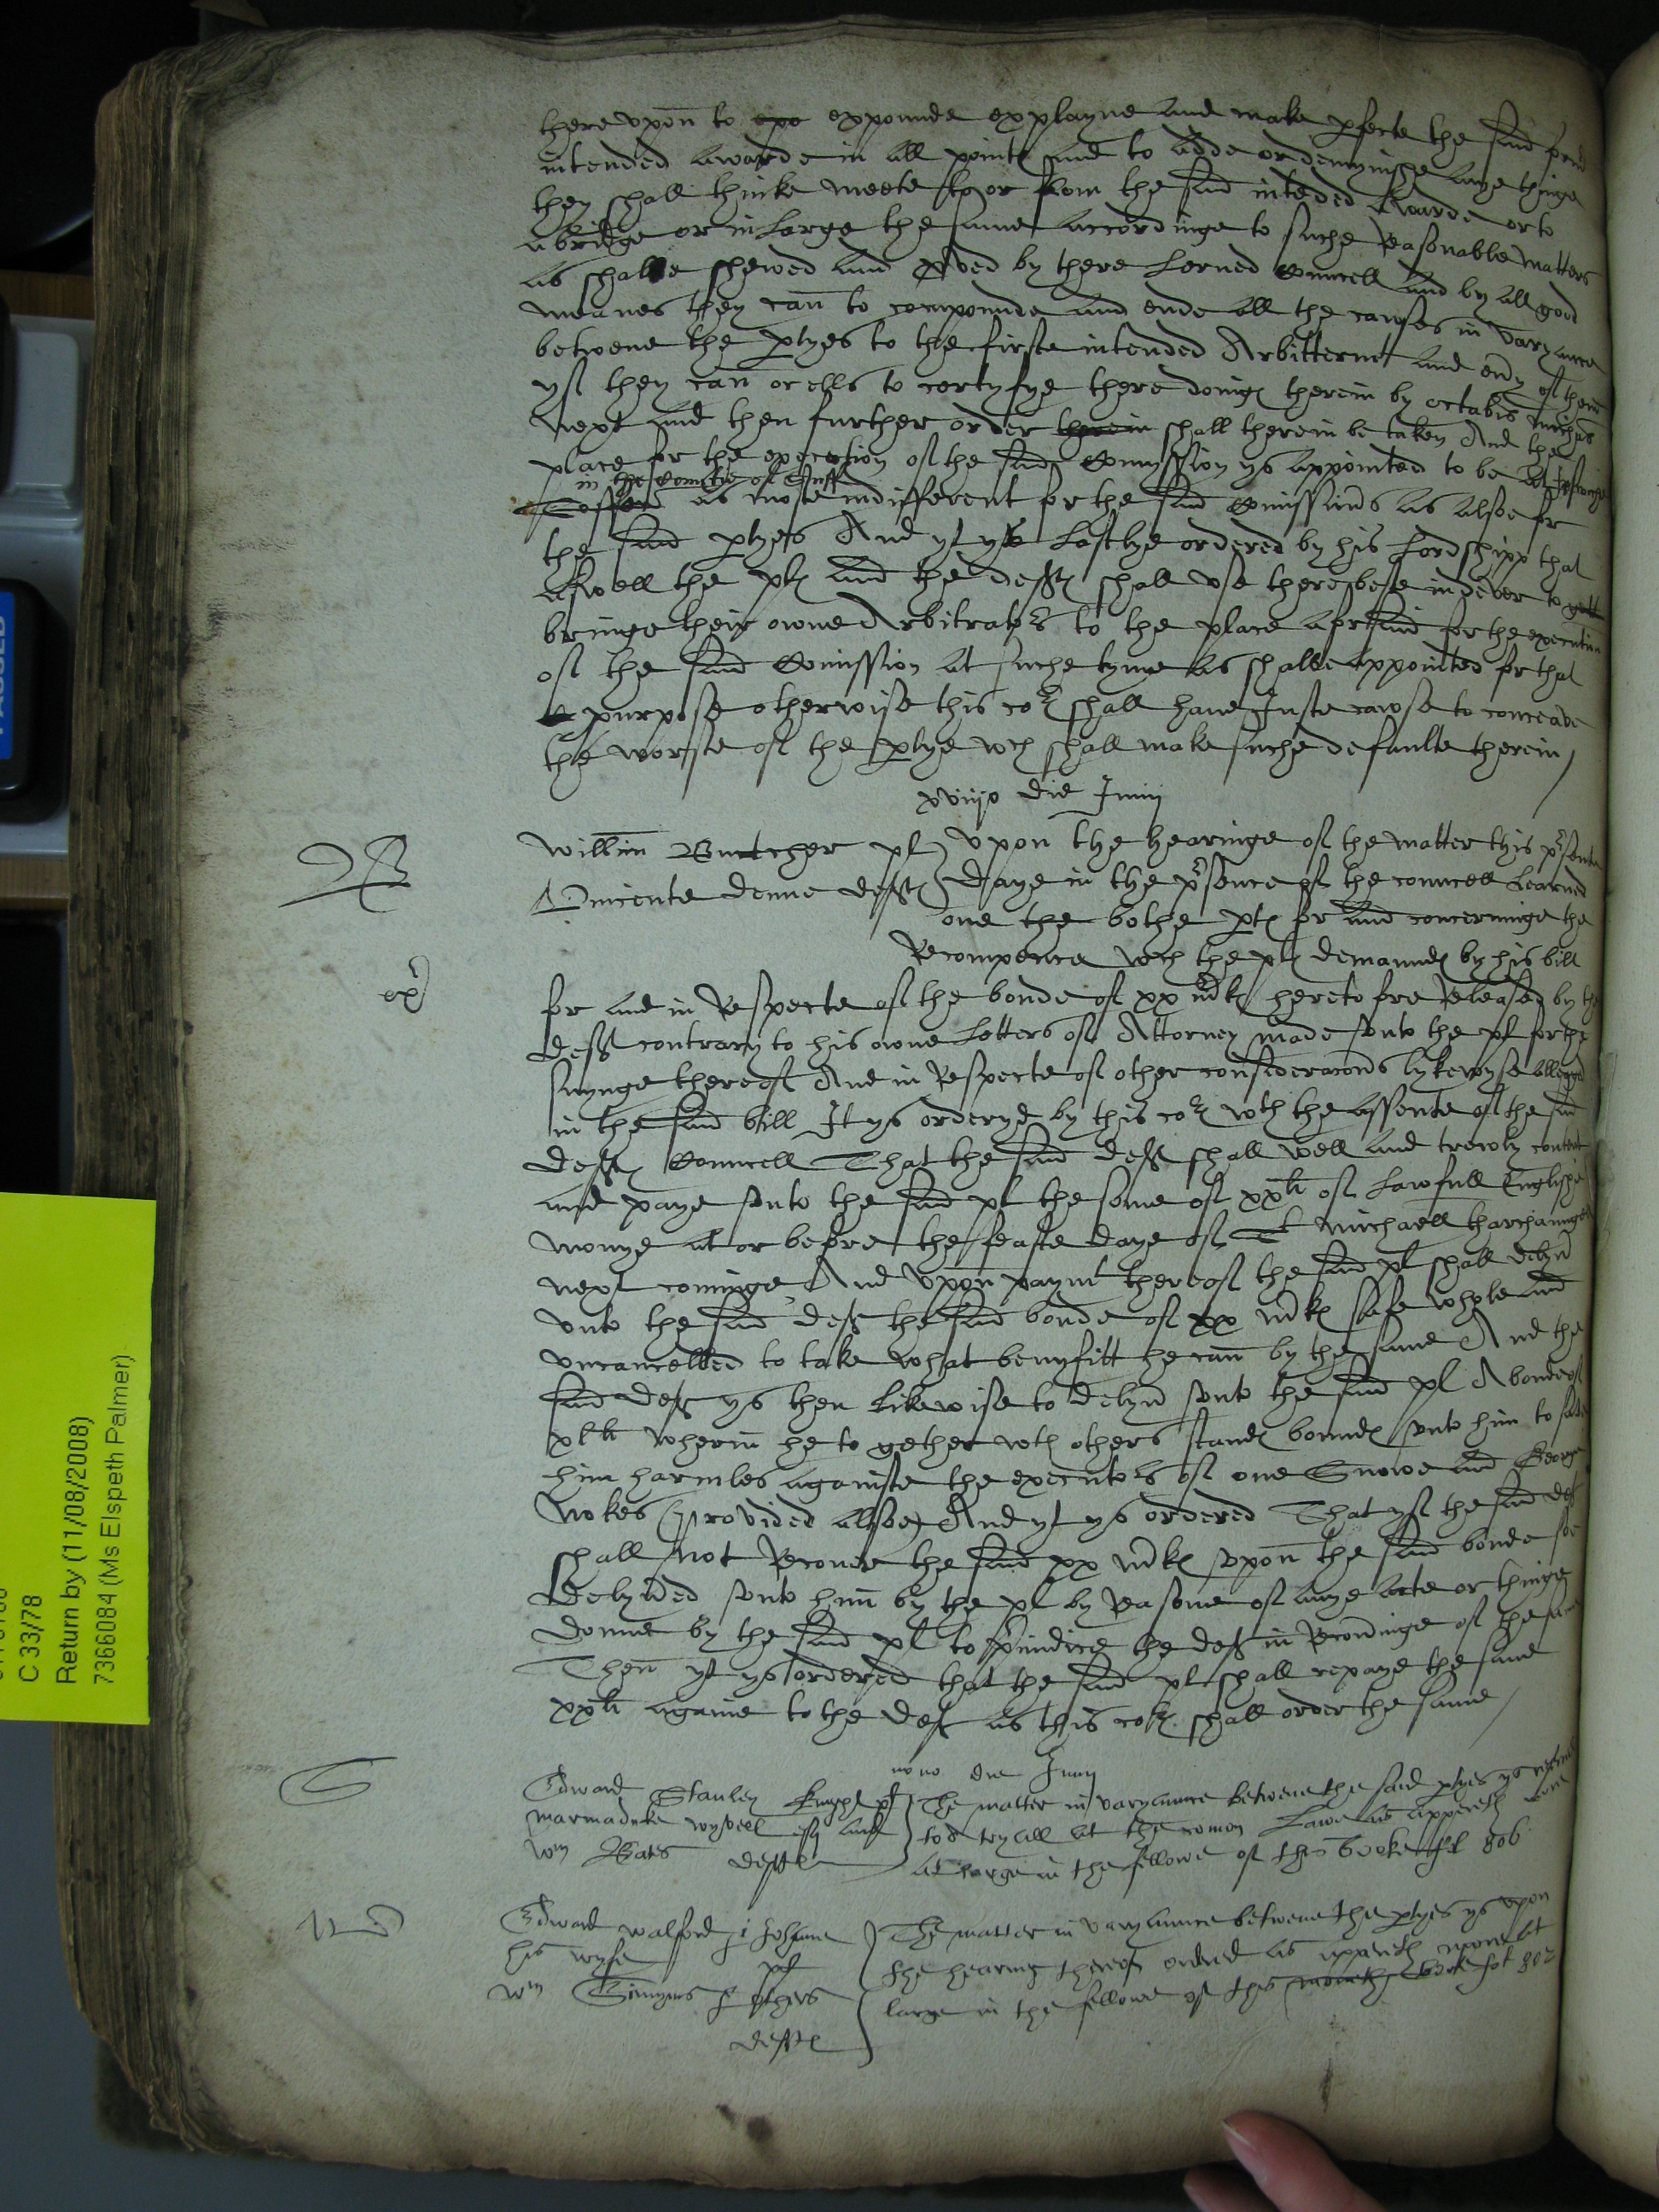 there vpon to expounde explayne and make pfecte the said
intended awarde in all points and to adde or demynishe anye thinge
they shall thinke meete to or from the said inteded Awarde or to
abridge or inlarge the same accordinge to suche Reasonable matters
as shalbe shewed and pved by there lerned Councell and by all good
meanes they can to compounde and ende all the cawses in varyance
betwene the ptyes to the firste intended Arbitterment and eny of them
yf they can or ells to certyfye there doings therein by octabis Michis
next and then further order therein shall therein be taken And the
place for the execution of the said Comission ys appointed to be at Ipswiche
in the Countie of Suff
as moste indifferent for the said Comissions as alsoe for
the said ptyes And yt ys lastlye ordered by his Lordshipp that
aswell the plt and the deft shall vse there beste indevor to
bringe their owne Arbitrators to the place aforsaid for the execution
of the said Comission at suche tyme as shalbe appointed for that
purpose otherwise this cort shall have Juste cawse to conceave
the worste of the ptye wch shall make suche defaulte therein
xviijo die Junij
Willm Butcher plt Vpon the hearinge of the matter this psente
Vincente Denne deft daye in the psence of the councell learned
one the bothe pts for and concerninge the
Recompence wch the plt demaunds by his bill
for and in Respecte of the bonde of xx mks heretofore Released by the
deft contrary to his owne letters of Attorney made vnto the plt for the
suynge thereof And in Respecte of other consideracons lykewyse alleged
in the said bill It ys orderyd by this cort wth the assente of the said
defts Councell That the said deft shall well and trewly content
and paye vnto the said plt the some of xxli of lawfull Englishe
monye at or before the feaste daye of St Michaell tharchaungell
next cominge And vpon paymt thereof the said plt shall delyvr
vnto the said deft the said bonde of xx mks safe whole and
vncancelled to take what benyfitt he can by the same And the
said deft ys then likewise to delyvr vnto the said plt A bonde of
xlli wherin he to gether wth others stands bounde vnto him to save
him harmles againste the executors of one Snowe and George
Nokes (provided alsoe) And yt ys ordered That yf the said deft
shall not Recover the said xx mks vpon the said bonde soe
delyvred vnto him by the plt by Reasone of anye acte or thinge
donne by the said plt to piudice the deft in Recordinge of the same
Then yt ys ordered that the said plt shall repaye the said
xxli againe to the deft as this cort shall order the same
nono die Junij
Edward Stanley knyght plt The matter in varyaunce betwene the said ptyes ys
Marmaduke Wyvell esq and to tryall at the comon Lawe as appereth more
Wm Bates defts at large in the fellowe of this booke fol 806
Edward Walford & Johane The matter in varyaunce betwene the ptyes ys vpon
his wyfe plt the hearing thereof ordered as appereth more at
Wm Simyns & others large in the fellowe of this booke fol 802
defts
C 33/78
Return by (11/08/2008)
7366084 (Ms Elspeth Palmer)